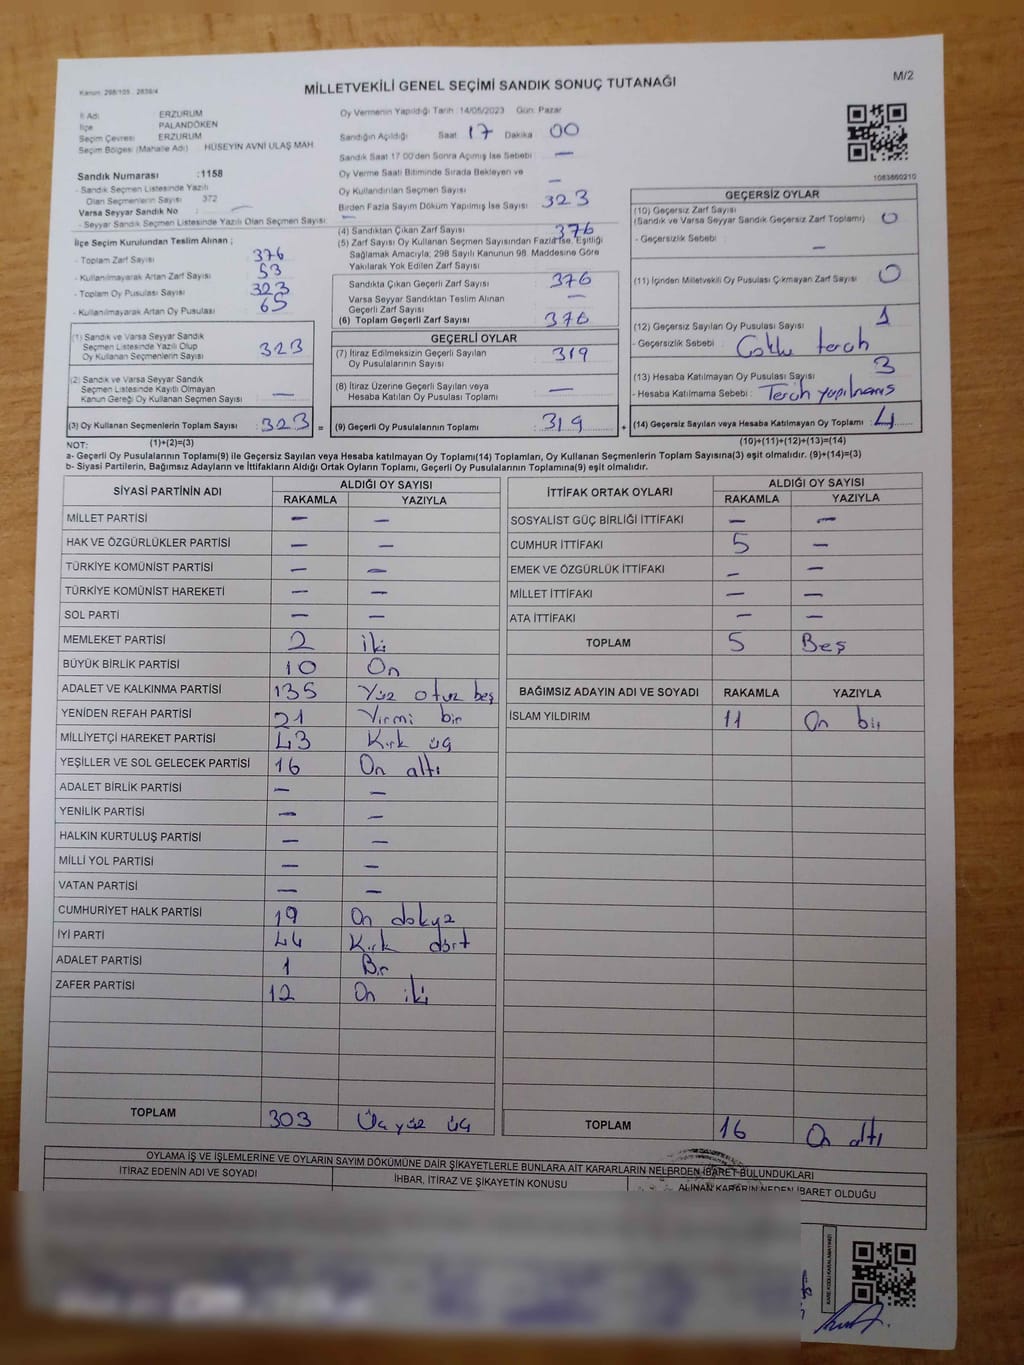 M/2
Kanun: 298/105 , 2839/4
MİLLETVEKİLİ GENEL SEÇİMİ SANDIK SONUÇ TUTANAĞI
İl Adı ERZURUM
İlçe PALANDÖKEN
Seçim Çevresi ERZURUM
Seçim Bölgesi (Mahalle Adı) : HÜSEYİN AVNİ ULAŞ MAH
Sandık Numarası :1158
- Sandık Seçmen Listesinde Yazılı
Olan Seçmenlerin Sayısı 372
Varsa Seyyar Sandık No —
- Seyyar Sandık Seçmen Listesinde Yazılı Olan Seçmen Sayısı: —
İlçe Seçim Kurulundan Teslim Alınan ;
- Toplam Zarf Sayısı : 376
- Kullanılmayarak Artan Zarf Sayısı : 53
- Toplam Oy Pusulası Sayısı : 323
- Kullanılmayarak Artan Oy Pusulası : 65
(1) Sandık ve Varsa Seyyar Sandık
Seçmen Listesinde Yazılı Olup
Oy Kullanan Seçmenlerin Sayısı : 323
(2) Sandık ve Varsa Seyyar Sandık
Seçmen Listesinde Kayıtlı Olmayan
Kanun Gereği Oy Kullanan Seçmen Sayısı : —
(3) Oy Kullanan Seçmenlerin Toplam Sayısı : 323 =
Oy Vermenin Yapıldığı Tarih : 14/05/2023 Gün: Pazar
Sandığın Açıldığı Saat 17 Dakika 00
Sandık Saat 17:00'den Sonra Açılmış İse Sebebi : —
Oy Verme Saati Bitiminde Sırada Bekleyen ve
Oy Kullandırılan Seçmen Sayısı : —
Birden Fazla Sayım Döküm Yapılmış İse Sayısı : 323
(4) Sandıktan Çıkan Zarf Sayısı : 376
(5) Zarf Sayısı Oy Kullanan Seçmen Sayısından Fazla İse, Eşitliği
Sağlamak Amacıyla; 298 Sayılı Kanunun 98. Maddesine Göre
Yakılarak Yok Edilen Zarf Sayısı :
Sandıkta Çıkan Geçerli Zarf Sayısı : 376
Varsa Seyyar Sandıktan Teslim Alınan
Geçerli Zarf Sayısı : —
(6) Toplam Geçerli Zarf Sayısı : 376
GEÇERLİ OYLAR
(7) İtiraz Edilmeksizin Geçerli Sayılan
Oy Pusulalarının Sayısı : 319
(8) İtiraz Üzerine Geçerli Sayılan veya
Hesaba Katılan Oy Pusulası Toplamı : —
(9) Geçerli Oy Pusulalarının Toplamı : 319 +
1083860210
GEÇERSİZ OYLAR
(10) Geçersiz Zarf Sayısı
(Sandık ve Varsa Seyyar Sandık Geçersiz Zarf Toplamı) : 0
- Geçersizlik Sebebi : —
(11) İçinden Milletvekili Oy Pusulası Çıkmayan Zarf Sayısı : 0
(12) Geçersiz Sayılan Oy Pusulası Sayısı : 1
- Geçersizlik Sebebi : Çoklu tercih
(13) Hesaba Katılmayan Oy Pusulası Sayısı : 3
- Hesaba Katılmama Sebebi : Tercih yapılmamış
(14) Geçersiz Sayılan veya Hesaba Katılmayan Oy Toplamı : 4
NOT: (1)+(2)=(3) (10)+(11)+(12)+(13)=(14)
a- Geçerli Oy Pusulalarının Toplamı(9) ile Geçersiz Sayılan veya Hesaba katılmayan Oy Toplamı(14) Toplamları, Oy Kullanan Seçmenlerin Toplam Sayısına(3) eşit olmalıdır. (9)+(14)=(3)
b- Siyasi Partilerin, Bağımsız Adayların ve İttifakların Aldığı Ortak Oyların Toplamı, Geçerli Oy Pusulalarının Toplamına(9) eşit olmalıdır.
SİYASİ PARTİNİN ADI ALDIĞI OY SAYISI
RAKAMLA YAZIYLA
MİLLET PARTİSİ — —
HAK VE ÖZGÜRLÜKLER PARTİSİ — —
TÜRKİYE KOMÜNİST PARTİSİ — —
TÜRKİYE KOMÜNİST HAREKETİ — —
SOL PARTİ — —
MEMLEKET PARTİSİ 2 iki
BÜYÜK BİRLİK PARTİSİ 10 On
ADALET VE KALKINMA PARTİSİ 135 Yüz otuz beş
YENİDEN REFAH PARTİSİ 21 Yirmi bir
MİLLİYETÇİ HAREKET PARTİSİ 43 Kırk üç
YEŞİLLER VE SOL GELECEK PARTİSİ 16 On altı
ADALET BİRLİK PARTİSİ — —
YENİLİK PARTİSİ — —
HALKIN KURTULUŞ PARTİSİ — —
MİLLİ YOL PARTİSİ — —
VATAN PARTİSİ — —
CUMHURİYET HALK PARTİSİ 19 On dokuz
İYİ PARTİ 44 Kırk dört
ADALET PARTİSİ 1 Bir
ZAFER PARTİSİ 12 On iki
TOPLAM 303 Üç yüz üç
İTTİFAK ORTAK OYLARI ALDIĞI OY SAYISI
RAKAMLA YAZIYLA
SOSYALİST GÜÇ BİRLİĞİ İTTİFAKI — —
CUMHUR İTTİFAKI 5 —
EMEK VE ÖZGÜRLÜK İTTİFAKI — —
MİLLET İTTİFAKI — —
ATA İTTİFAKI — —
TOPLAM 5 Beş
BAĞIMSIZ ADAYIN ADI VE SOYADI RAKAMLA YAZIYLA
İSLAM YILDIRIM 11 On bir
TOPLAM 16 On altı
OYLAMA İŞ VE İŞLEMLERİNE VE OYLARIN SAYIM DÖKÜMÜNE DAİR ŞİKAYETLERLE BUNLARA AİT KARARLARIN NELERDEN İBARET BULUNDUKLARI
İTİRAZ EDENİN ADI VE SOYADI İHBAR, İTİRAZ VE ŞİKAYETİN KONUSU ALINAN KARARIN NEDEN İBARET OLDUĞU